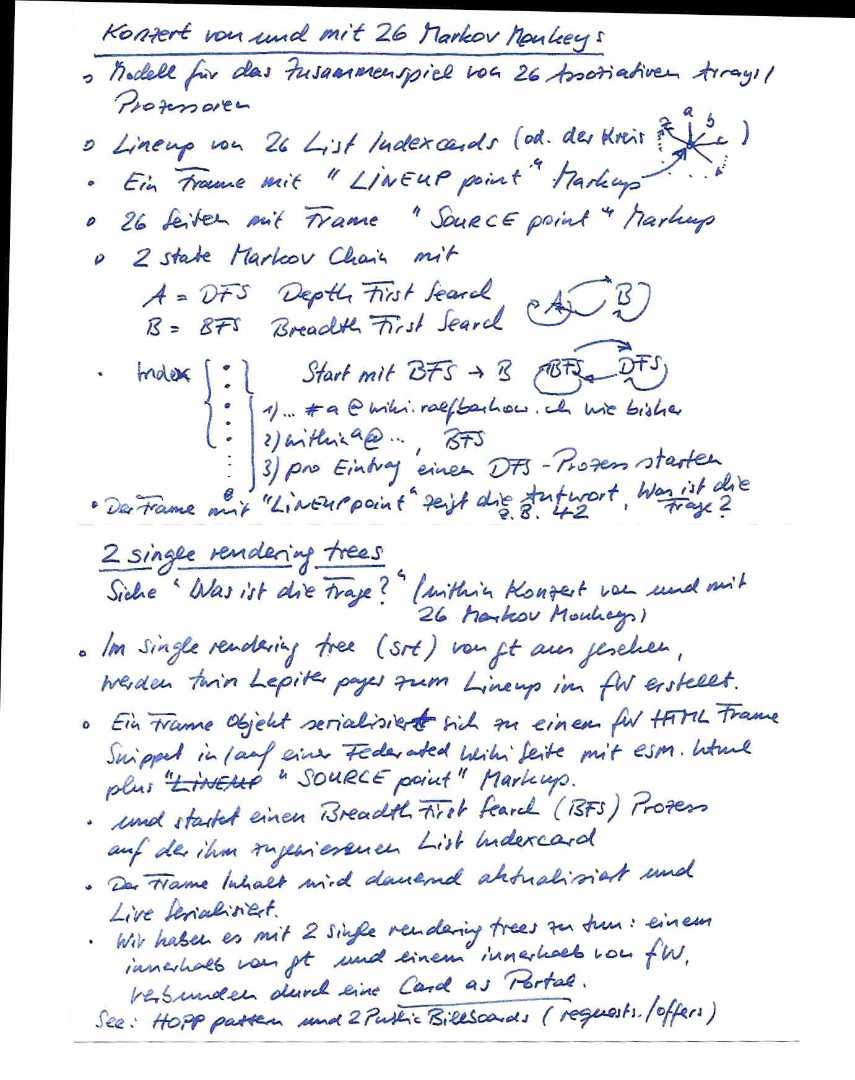 Konzert von und mit 26 Markov Monkeys
o Modell für das Zusammenspiel von 26 Assoziativen Arrays /
Prozessoren
o Lineup von 26 List Indexcards (od. der Kreis z a b c )
• Ein Frame mit "LINEUP point" Markup
o 26 Seiten mit Frame "SOURCE point" Markup
o 2 state Markov Chain mit
A = DFS Depth First Search A B
B = BFS Breadth First Search
• Index Start mit BFS → B BFS DFS
1) ... #a @wiki.ralfbarkow.ch wie bisher
2) within a@ ..., BFS
3) pro Eintrag einen DFS-Prozess starten
• Der Frame mit "LINEUP point" zeigt die Antwort, Was ist die
z.B. 42 Frage?
2 single rendering trees
Siehe "Was ist die Frage?" (within Konzert von und mit
26 Markov Monkeys)
o Im single rendering tree (srt) von gt aus gesehen,
werden twin Lepiter pages zum Lineup im fW erstellt.
o Ein Frame Objekt serialisiert sich zu einem fW HTML Frame
Snippet in/auf einer Federated Wiki Seite mit esm.html
plus "LINEUP "SOURCE point" Markup.
• und startet einen Breadth First Search (BFS) Prozess
auf der ihm zugewiesenen List Indexcard
• Der Frame Inhalt wird dauernd aktualisiert und
Live Serialisiert.
• Wir haben es mit 2 single rendering trees zu tun: einem
innerhalb von gt und einem innerhalb von fW,
verbunden durch eine Card as Portal.
See: HOPP pattern und 2 Public Billboards (requests/offers)